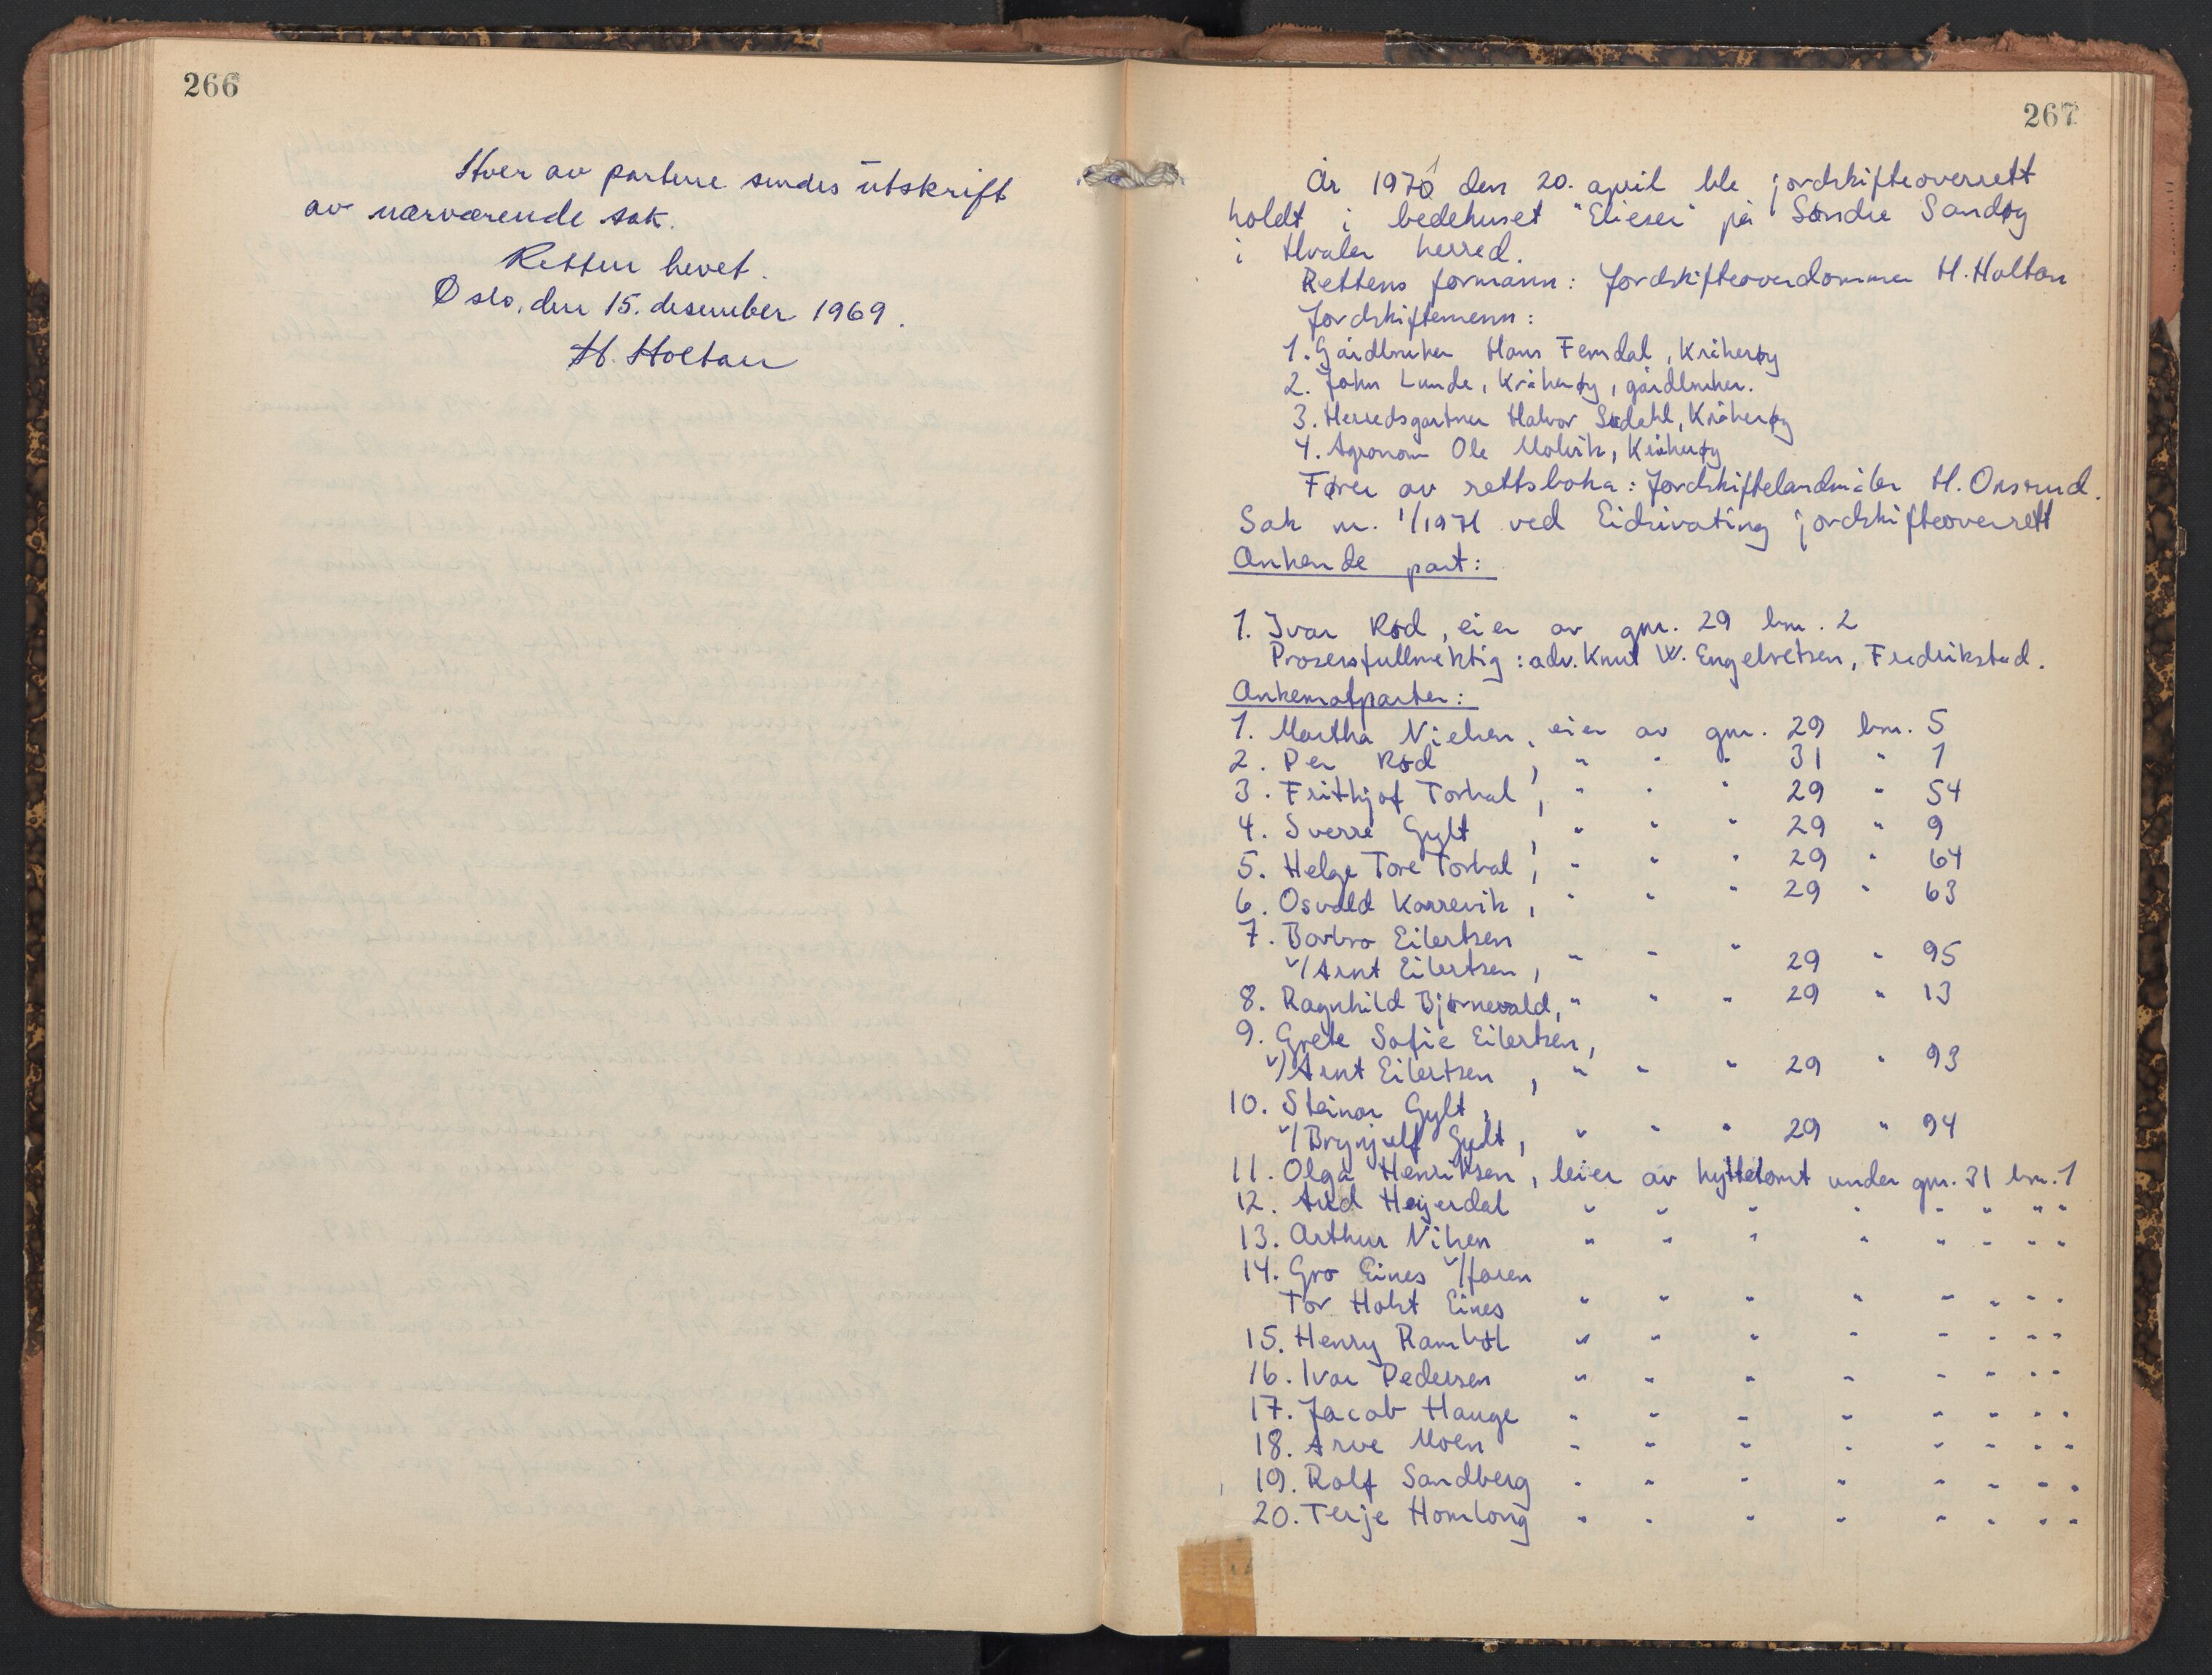 266
Hver av partene sendes utskrift
av nærværende sak.
Retten hevet.
Oslo, den 15. desember 1969.
H. Holtan
267
År 1971 den 20. april ble jordskifteoverrett
holdt i bedehuset "Elieser" på Søndre Sandøy
i Hvaler herred.
Rettens formann: Jordskifteoverdommer H. Holtan
Jordskiftemenn:
1. Gårdbruker Hans Femdal, Kråkerøy
2. John Lunde, Kråkerøy, gårdbruker.
3. Herredsgartner Halvor Sødahl, Kråkerøy
4. Agronom Ole Molvik, Kråkerøy
Fører av rettsboka: Jordskiftelandmåler H. Onsrud.
Sak nr. 1/1971 ved Eidsivating jordskifteoverrett
Ankende part:
1. Ivar Rød, eier av gnr. 29 bnr. 2
Prosessfullmektig: adv. Knut W. Engelvetsen, Fredrikstad.
Ankemotparter:
1. Martha Nielsen, eier av gnr. 29 bnr. 5
2. Per Rød , " " " 31 " 1
3. Frithjof Torkal, " " " 29 " 54
4. Sverre Gylt , " " " 29 " 9
5. Helge Tore Torkal, " " " 29 " 64
6. Osvald Karrevik, " " " 29 " 63
7. Barbro Eilertsen
v/Arnt Eilertsen, " " " 29 " 95
8. Ragnhild Bjørnevald, " " " 29 " 13
9. Grete Sofie Eilertsen,
v/Arnt Eilertsen, " " " 29 " 93
10. Steinar Gylt,
v/Brynjulf Gylt, " " " 29 " 94
11. Olga Henriksen, leier av hyttetomt under gnr. 31 bnr. 1
12. Arild Heyerdal " " " " " " " "
13. Arthur Nilsen " " " " " " " "
14. Gro Eines v/faren
Tor Holst Eines " " " " " " " "
15. Henry Rambøl " " " " " " " "
16. Ivar Pedersen " " " " " " " "
17. Jacob Hauge " " " " " " " "
18. Arve Moen " " " " " " " "
19. Rolf Sandberg " " " " " " " "
20. Terje Homlong " " " " " " " "